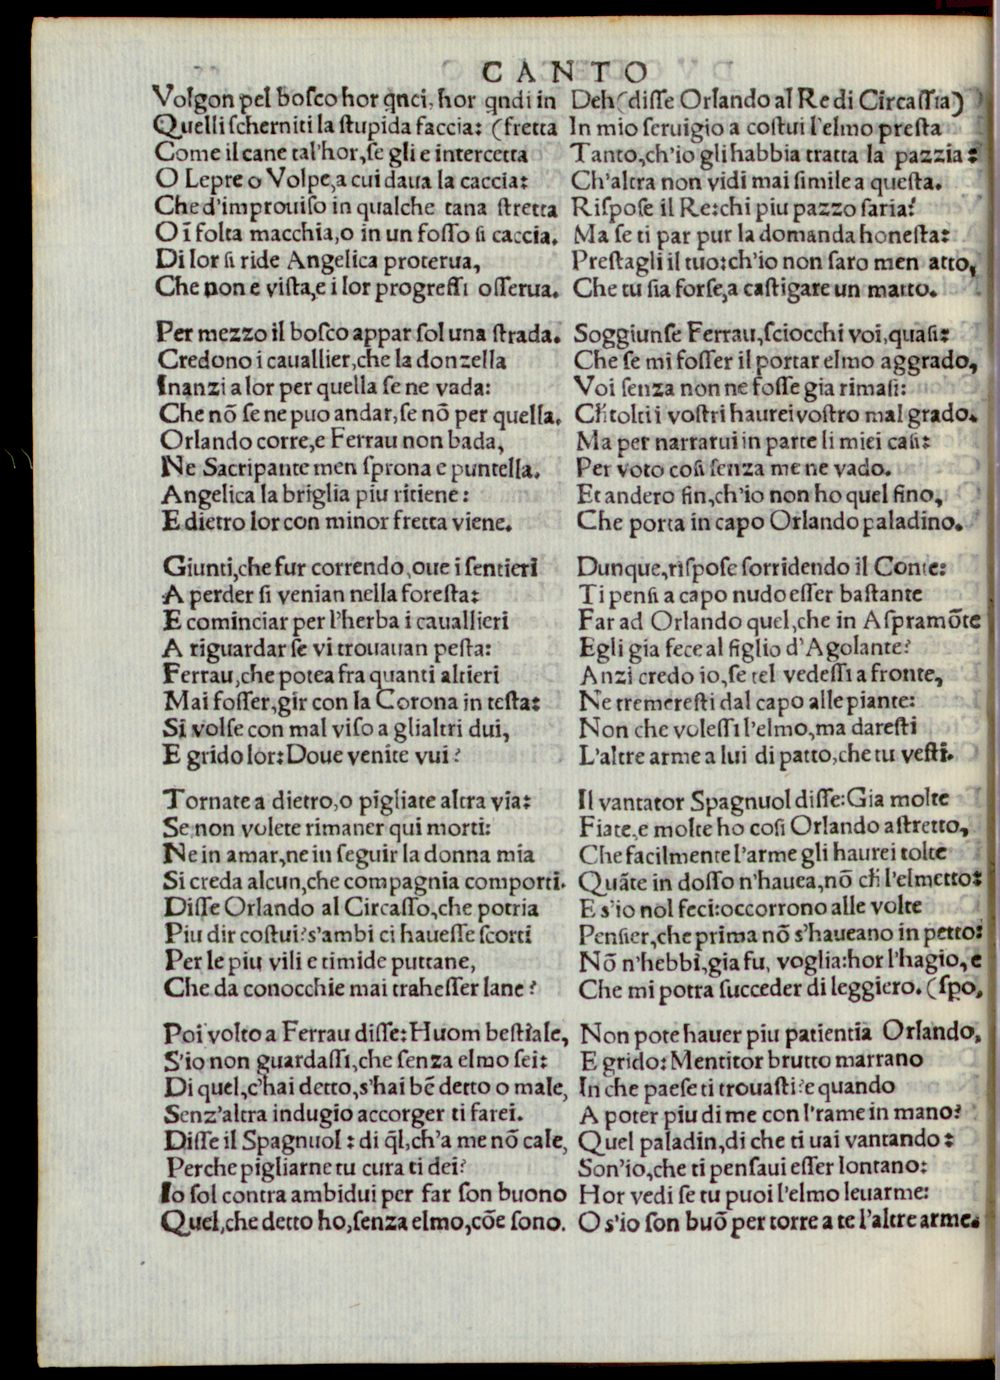 CANTO
Volgon pel bosco hor q̃nci, hor q̃ndi in
Quelli scherniti la stupida faccia: (fretta
Come il cane tal'hor, se gli e intercetta
O Lepre o Volpe, a cui daua la caccia:
Che d'improuiso in qualche tana stretta
O ĩ folta macchia, o in un fosso si caccia.
Di lor si ride Angelica proterua,
Che non e vista, e i lor progressi osserua.
Per mezzo il bosco appar sol una strada.
Credono i cauallier, che la donzella
Inanzi a lor per quella se ne vada:
Che nõ se ne puo andar, se nõ per quella.
Orlando corre, e Ferrau non bada,
Ne Sacripante men sprona e puntella.
Angelica la briglia piu ritiene:
E dietro lor con minor fretta viene.
Giunti, che fur correndo, oue i sentieri
A perder si venian nella foresta:
E cominciar per l'herba i cauallieri
A riguardar se vi trouauan pesta:
Ferrau, che potea fra quanti altieri
Mai fosser, gir con la Corona in testa:
Si volse con mal viso a gli altri dui,
E grido lor: Doue venite vui?
Tornate a dietro, o pigliate altra via:
Se non volete rimaner qui morti:
Ne in amar, ne in seguir la donna mia
Si creda alcun, che compagnia comporti.
Disse Orlando al Circasso, che potria
Piu dir costui? s'ambi ci hauesse scorti
Per le piu vili e timide puttane,
Che da conocchie mai trahesser lane?
Poi volto a Ferrau disse: Huom bestiale,
S'io non guardassi, che senza elmo sei:
Di quel, c'hai detto, s'hai bẽ detto o male,
Senz'altra indugio accorger ti farei.
Disse il Spagnuol: di q̃l, ch'a me nõ cale,
Perche pigliarne tu cura ti dei?
Io sol contra ambidui per far son buono
Quel, che detto ho, senza elmo, cõe sono.
Deh (disse Orlando al Re di Circassia)
In mio seruigio a costui l'elmo presta
Tanto, ch'io gli habbia tratta la pazzia:
Ch'altra non vidi mai simile a questa.
Rispose il Re: chi piu pazzo saria?
Ma se ti par pur la domanda honesta:
Prestagli il tuo: ch'io non saro men atto,
Che tu sia forse, a castigare un matto.
Soggiunse Ferrau, sciocchi voi, quasi:
Che se mi fosser il portar elmo aggrado,
Voi senza non ne fosse gia rimasi:
Ch̃ tolti i vostri haurei vostro mal grado.
Ma per narrarui in parte li miei casi:
Per voto cosi senza me ne vado.
Et andero fin, ch'io non ho quel fino,
Che porta in capo Orlando paladino.
Dunque, rispose sorridendo il Conte:
Ti pensi a capo nudo esser bastante
Far ad Orlando quel, che in Aspramõte
Egli gia fece al figlio d'Agolante?
Anzi credo io, se tel vedessi a fronte,
Ne tremeresti dal capo alle piante:
Non che volessi l'elmo, ma daresti
L'altre arme a lui di patto, che tu vesti.
Il vantator Spagnuol disse: Gia molte
Fiate, e molte ho cosi Orlando astretto,
Che facilmente l'arme gli haurei tolte
Quãte in dosso n'hauea, nõ ch̃ l'elmetto:
E s'io nol feci: occorrono alle volte
Pensier, che prima nõ s'haueano in petto:
Nõ n'hebbi, gia fu, voglia: hor l'hagio, e
Che mi potra succeder di leggiero. (spo,
Non pote hauer piu patientia Orlando,
E grido: Mentitor brutto marrano
In che paese ti trouasti? e quando
A poter piu di me con l'rame in mano?
Quel paladin, di che ti uai vantando:
Son'io, che ti pensaui esser lontano:
Hor vedi se tu puoi l'elmo leuarme:
O s'io son buõ per torre a te l'altre arme.